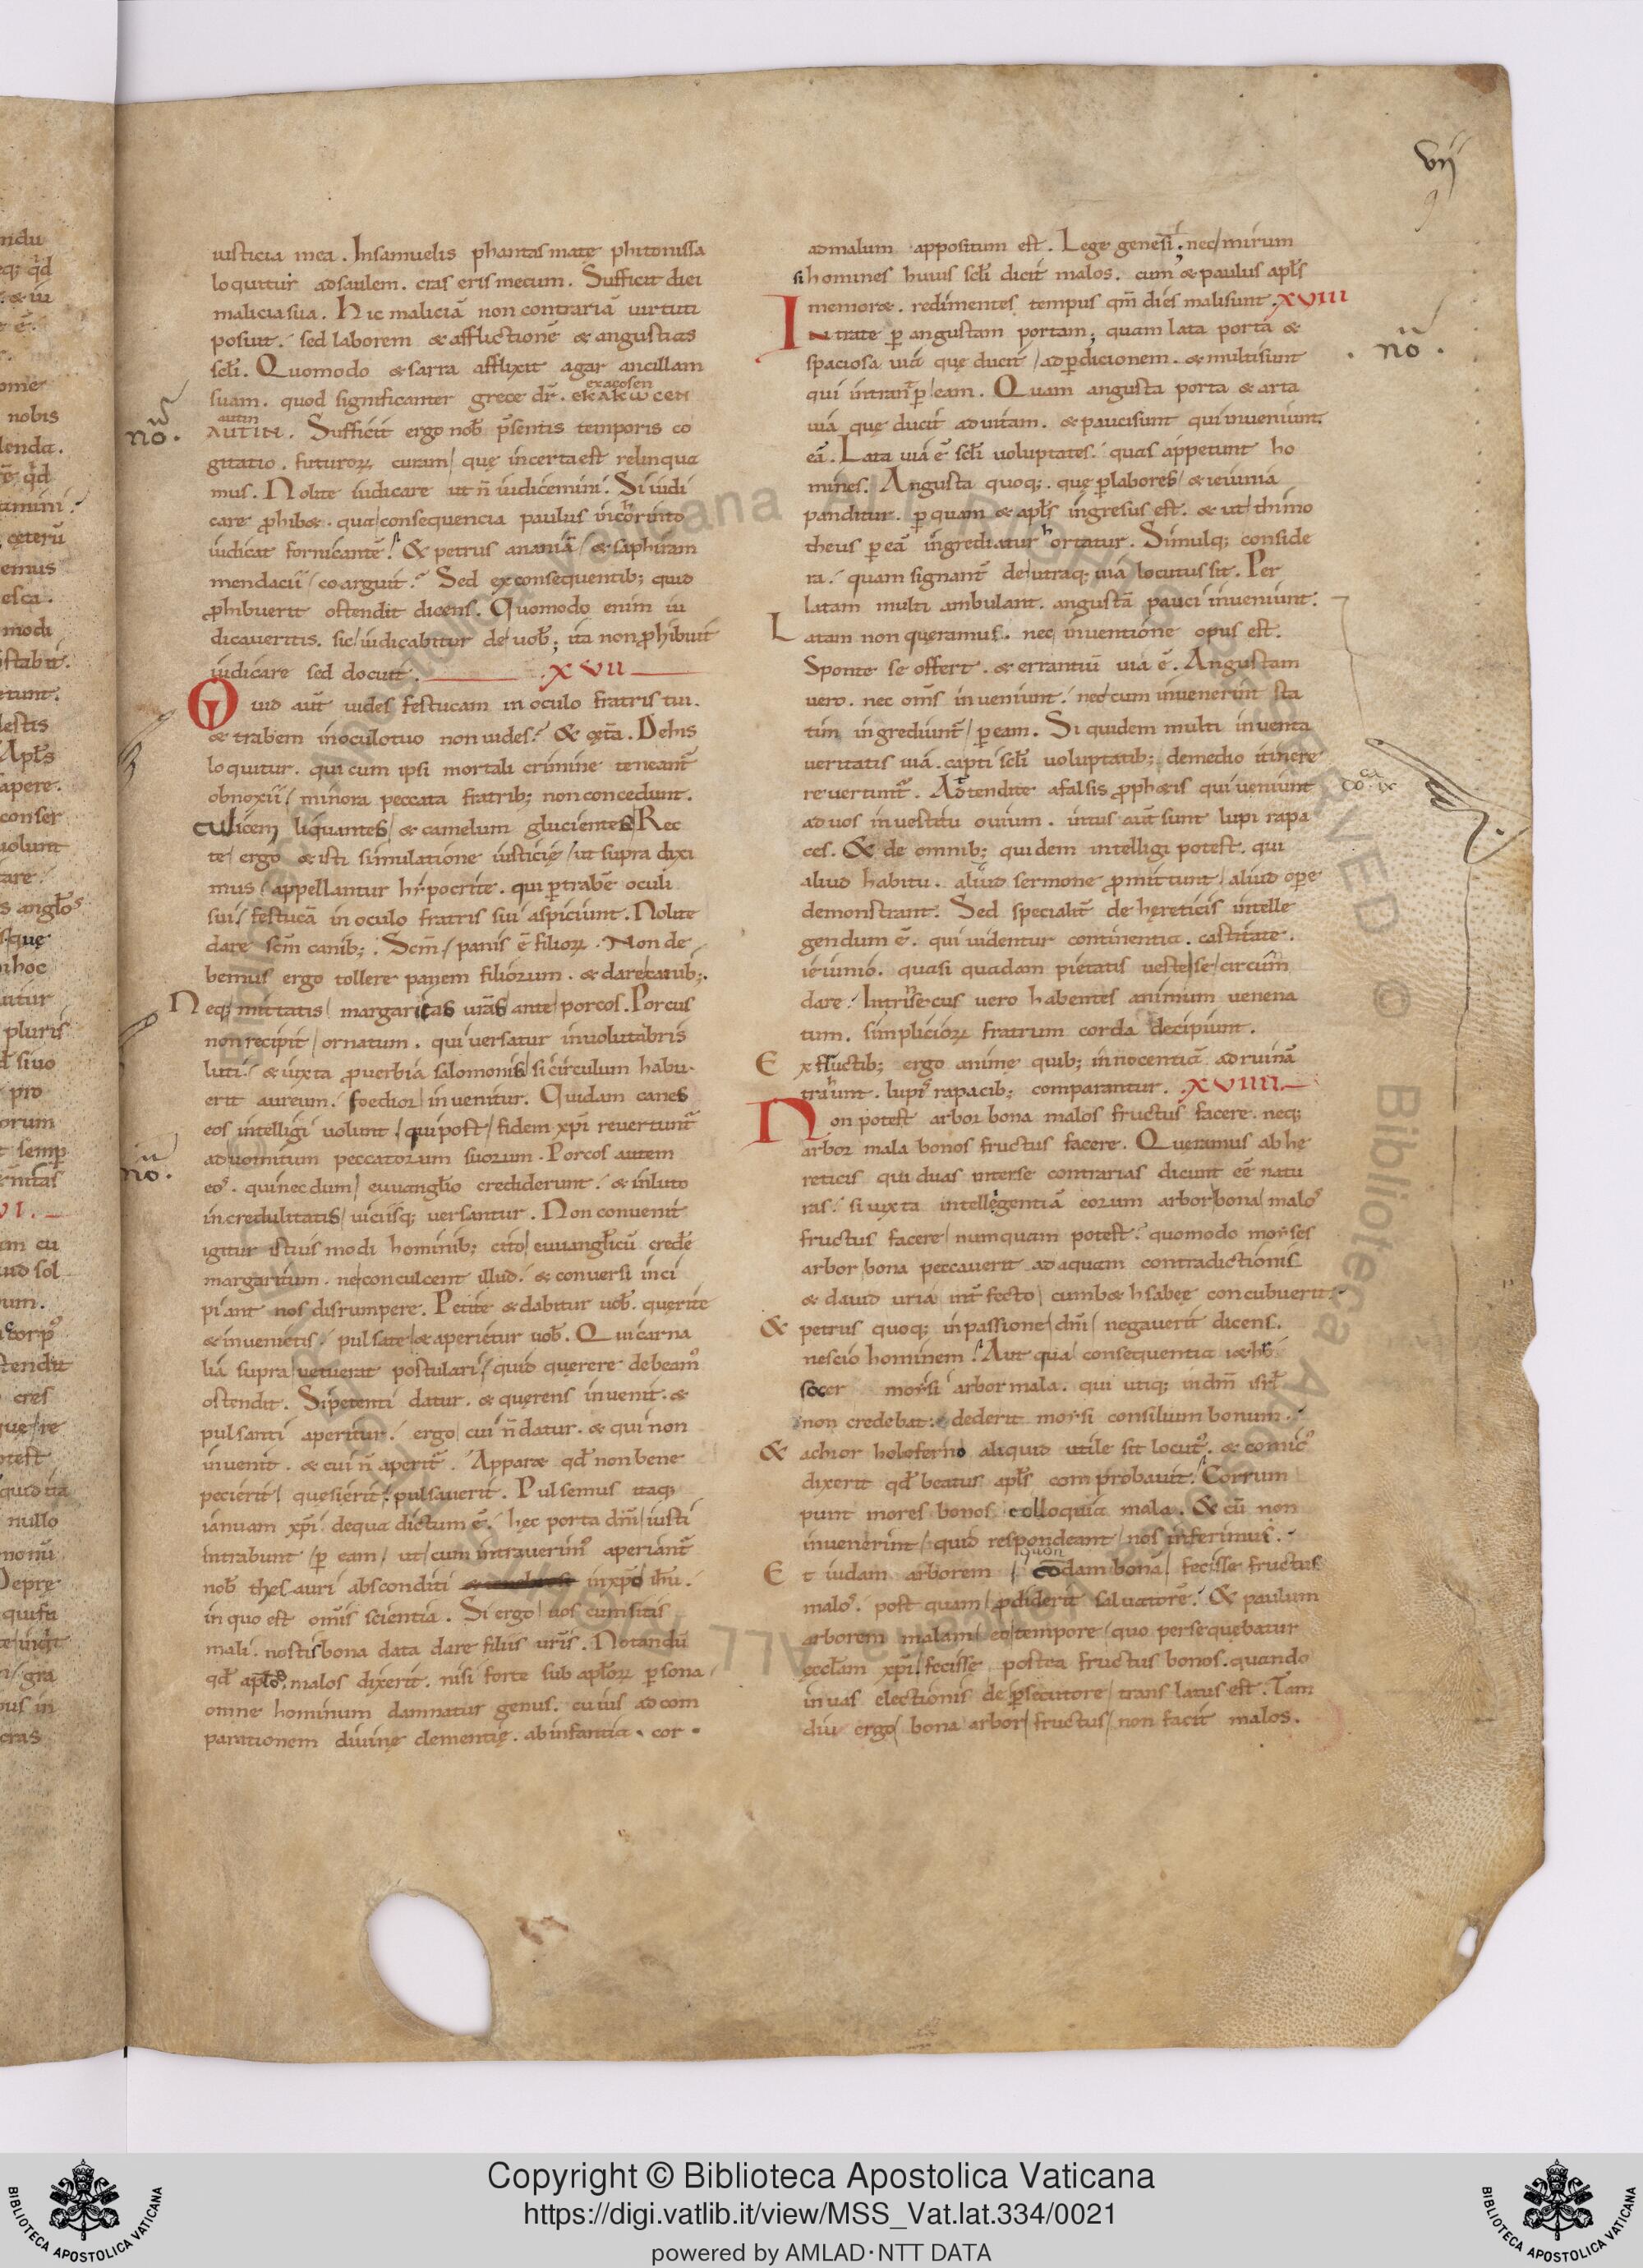 vii
9
iusticia mea. Insamuelis phantasmate phitonissa
loquitur adsaulem. cras eris mecum. Sufficit diei
malicia sua. Hic maliciā non contrariā uirtuti
posuit. sed laborem & afflictionē & angustias
scl̄i. Quomodo & sarra afflixit agar ancillam
exacosen
suam. quod significanter grece dr̄. ekakωcen
autin
no.
AUTIN. Sufficit ergo nob̄ p̄sentis temporis co
gitatio. futuroꝝ curam quę incerta est relinqua
mus. Nolite iudicare ut n̄ iudicemini. Si iudi
care ꝓhib&. qua consequencia paulus īchorinto
iudicat fornicantē. & petrus ananiā & saphiram
mendacii coarguit. Sed ex consequentib; quid
ꝓhibuerit ostendit dicens. Quomodo enim iu
dicaueritis. sic iudicabitur de uob̄; ita non ꝓhibuit
iudicare sed docuit. .XVII
Quid aut̄ uides festucam in oculo fratris tui.
& trabem inoculotuo non uides. & cęt̄a. Dehis
loquitur. qui cum ipsi mortali crimine teneant̄
obnoxii minora peccata fratrib; non concedunt.
culicem liquantes & camelum glucientes Rec
te ergo & isti simulatione iusticię ut supra dixi
mus appellantur hipocrite. qui ꝑ trabē oculi
sui festucā in oculo fratris sui aspiciunt. Nolite
dare scm̄ canib;. Scm̄ panis ē filioꝝ. Non de
bemus ergo tollere panem filiorum. & dare canib;.
Neq; mittatis margaritas ur̄as ante porcos. Porcus
non recipit ornatum. qui uersatur inuolutabris
luti. & iuxta ꝓuerbia salomonis si circulum habu
erit aureum. foedior inuenitur. Quidam canes
eos intelligi uolunt qui post fidem xp̄i reuertunt̄
no.
aduomitum peccatorum suorum. Porcos autem
eos. qui nec dum euuangl̄io crediderunt. & inluto
incredulitatis uiciisq; uersantur. Non conuenit
igitur istius modi hominib; cito euuangl̄icū credere
margaritum. ne conculcent illud. & conuersi inci
piant nos disrumpere. Petite & dabitur uob̄. querite
& inuenietis. pulsate & aperietur uob̄. Qui carna
lia supra uetuerat postulari quid querere debeam᾿
ostendit. Si petenti datur. & querens inuenit. &
pulsanti aperitur. ergo cui n̄ datur. & qui non
inuenit. & cui n̄ aperit̄. Appar& qd̄ non bene
pecierit quęsierit pulsauerit. Pulsemus itaq;
ianuam xp̄i dequa dictum ē. hec porta dn̄i iusti
intrabunt ꝑ eam ut cum intrauerim᾿ aperiant̄
nob̄ thesauri absconditi inxp̄o ih̄u.
in quo est om̄is scientia. Si ergo uos cum sitis
mali. nostis bona data dare filiis ur̄is. Notandū
qd̄ apl̄os malos dixerit. nisi forte sub apl̄oꝝ ꝑsona
omne hominum damnatur genus. cuius ad com
parationem diuinę clementię. ab infantia. cor
admalum appositum est. Lege genesī. nec mirum
si homines huius scl̄i dicit malos. cum & paulus apl̄s
memor&. redimentes tempus qm̄ dies mali sunt. XVIII
Intrate ꝑ angustam portam; quam lata porta &
no.
spaciosa uia quę ducit adꝑdicionem. & multi sunt
qui intrant̄ ꝑ eam. Quam angusta porta & arta
uia que ducit aduitam. & pauci sunt qui inueniunt
eā. Lata uia ē scl̄i uoluptates. quas appetunt ho
mines. Angusta quoq;. quę ꝑ labores & ieiunia
panditur. ꝑ quam & apl̄s ingressus est. & ut thimo
theus ꝑ eā ingrediatur hortatur. Simulq; conside
ra. quam signant̄ de utraq; uia locutus sit. Per
latam multi ambulant. angustā pauci inueniunt.
Latam non queramus. nec inuentione opus est.
Sponte se offert. & errantiū uia ē. Angustam
uero. nec om̄s inueniunt. nec cum inuenerint sta
tim ingrediunt̄ ꝑ eam. Si quidem multi inuenta
ueritatis uia. capti scl̄i uoluptatib; demedio itinere
reuertunt̄. Adtendite afalsis ꝓph&is qui ueniunt
aduos inuestitu ouium. intus aut̄ sunt lupi rapa
ces. & de omnib; quidem intelligi potest. qui
aliud habitu. aliud sermone ꝓmittunt aliud oꝑe
demonstrant. Sed specialit̄ de hęreticis intelle
gendum ē. qui uidentur continentia. castitate.
ieiunio. quasi quadam pietatis ueste se circum̄
dare. Intrinsecus uero habentes animum uenena
tum. simplicioꝝ fratrum corda decipiunt.
Ex fructib; ergo animę quib; innocentiā ad ruinā
trahunt. lupis rapacib; comparantur. XVIIII
Non potest arbor bona malos fructus facere. neq;
arbor mala bonos fructus facere. Queramus ab he
reticis qui duas interse contrarias dicunt eē natu
ras. si iuxta intellegentiā eorum arbor bona malos
fructus facere numquam potest. quomodo moises
arbor bona peccauerit adaquam contradictionis
& dauid uria int̄fecto cumb&hsabee concubuerit.
& petrus quoq; inpassione dn̄i negauerit dicens.
nescio hominem. Aut qua consequentia i&hro
socer moisi arbor mala. qui utiq; indm̄ isrl̄
non credebat. dederit moisi consilium bonum.
& achior holoferno aliquid utile sit locut᾿. & comic᾿
dixerit qd̄ beatus apl̄s comprobauit. Corrum
punt mores bonos colloquia mala. & cū non
inuenerint quid respondeant nos inferimus.
quon
Et iudam arborem codam bonā fecisse fructus
malos. post quam ꝓdiderit saluatorē. & paulum
arborem malam eo tempore quo persequebatur
eccl̄am xp̄i fecisse postea fructus bonos. quando
inuas electionis de ꝑsecutore translatus est. Tam
diu ergo bona arbor fructus non facit malos.
Copyright © Biblioteca Apostolica Vaticana
https://digi.vatlib.it/view/MSS_Vat.lat.334/0021
powered by AMLAD·NTT DATA
BIBLIOTECA APOSTOLICA VATICANA
BIBLIOTECA APOSTOLICA VATICANA